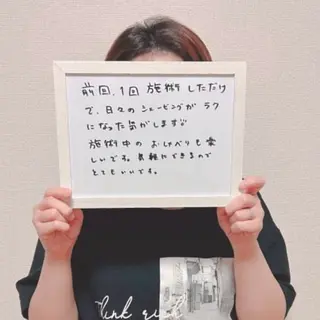 前回、1回 施術 しただけ
で、日々の シェービングが ラク
になった気がします
施術中の おしゃべりも 楽
しいです。気軽にできるので
とてもいいです。
link